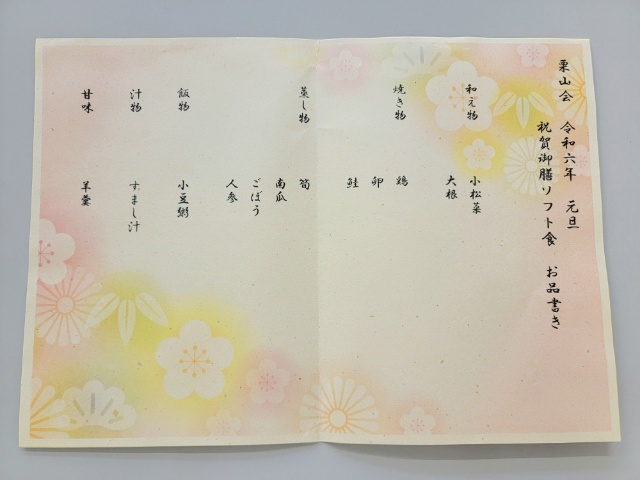 栗山会 令和六年 元旦
祝賀御膳ソフト食 お品書き
和え物 小松菜
大根
焼き物 鶏
卵
鮭
蒸し物 筍
南瓜
ごぼう
人参
飯物 小豆粥
汁物 すまし汁
甘味 羊羹